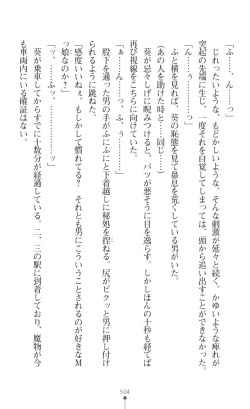 「ふ……、ん、……っ」
じれったいような、もどかしいような、そんな刺激が延々と続く。かゆいような痺れが
突起の先端に生じ、一度それを自覚してしまっては、頭から追い出すことができなかった。
「ん、っぅ……っ」
ふと横を見れば、葵の恥態を見て鼻息を荒くしている男がいた。
(あの人を助けた時と……同じ……)
葵が忌々しげに睨みつけると、バツが悪そうに目を逸らす。しかしほんの十秒も経てば
再び視線をこちらに向けていた。
「ぁ、ん……っ、ふ、ぅ」
股下を通った男の手がふにふにと下着越しに秘処を捏ねる。尻がピクッと男に押し付け
られるように跳ねた。
「感度いいねぇ、もしかして慣れてる? それとも男にこういうことされるのが好きなM
っ娘なのか?」
「ッ、……ふッ、……ッ」
葵が乗車してからすでに十数分が経過している。二、三の駅に到着しており、魔物が今
も車両内にいる確証はない。
504